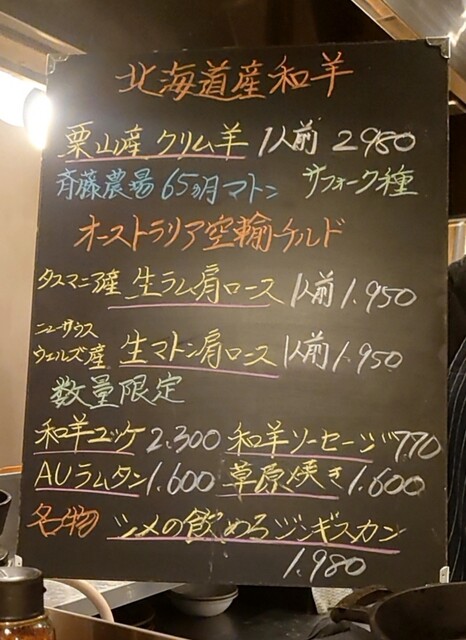 北海道産和羊
栗山産 クリム羊 1人前 2980
斉藤農場 65ヵ月マトン サフォーク種
オーストラリア空輸チルド
タスマニア産 生ラム肩ロース 1人前 1.950
ニューサウス
ウェルズ産 生マトン肩ロース 1人前 1.950
数量限定
和羊ユッケ 2.300 和羊ソーセージ 770
AUラムタン 1.600 草原焼き 1.600
名物 シメの飲めるジンギスカン
1.980